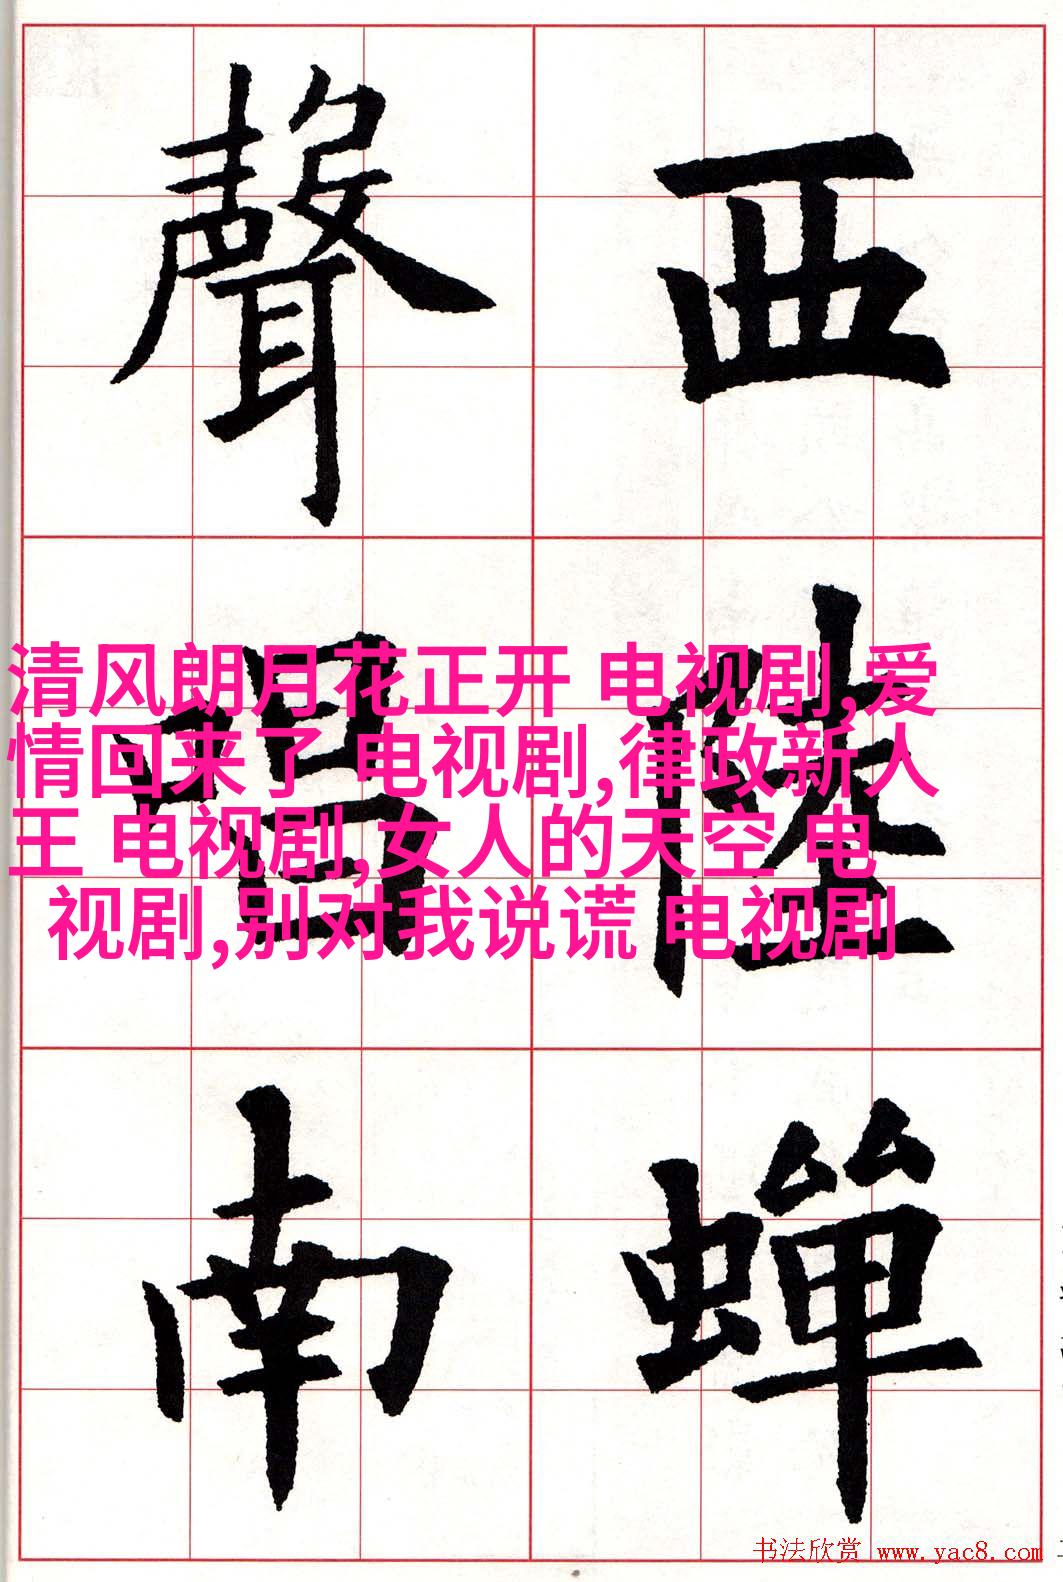 西陸蟬
聲唱南
清风朗月花正开 电视剧,爱
情回来了 电视剧,律政新人
王 电视剧,女人的天空 电
视剧,别对我说谎 电视剧
书法欣赏 www.yac8.com